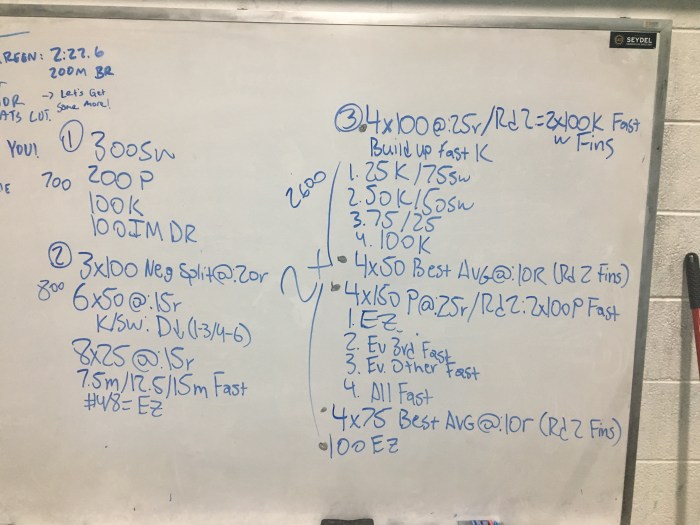 REEN: 2:22.6
200M BR
DR -> Let's Get
ATS CUT. Some more!
YOU!
① 300SW
700 200 P
100K
100IM DR
② 3x100 Neg Split@:20r
800 6x50 @:15r
K/SW: D↓(1-3/4-6)
8x25 @:15r
7.5m/12.5/15m Fast
#4/8= EZ
SEYDEL
③ 4x100@:25r/Rd2=2x100K Fast
w Fins
Build up fast K
2600
1. 25K/75SW
2. 50K/50SW
3. 75/25
4. 100K
4x50 Best Avg@:10R (Rd2 Fins)
4x150 P@:25r/Rd2:2x100P Fast
1. EZ
2. Ev 3rd Fast
3. Ev. Other Fast
4. All Fast
4x75 Best AVG@:10r (Rd2 Fins)
100 EZ